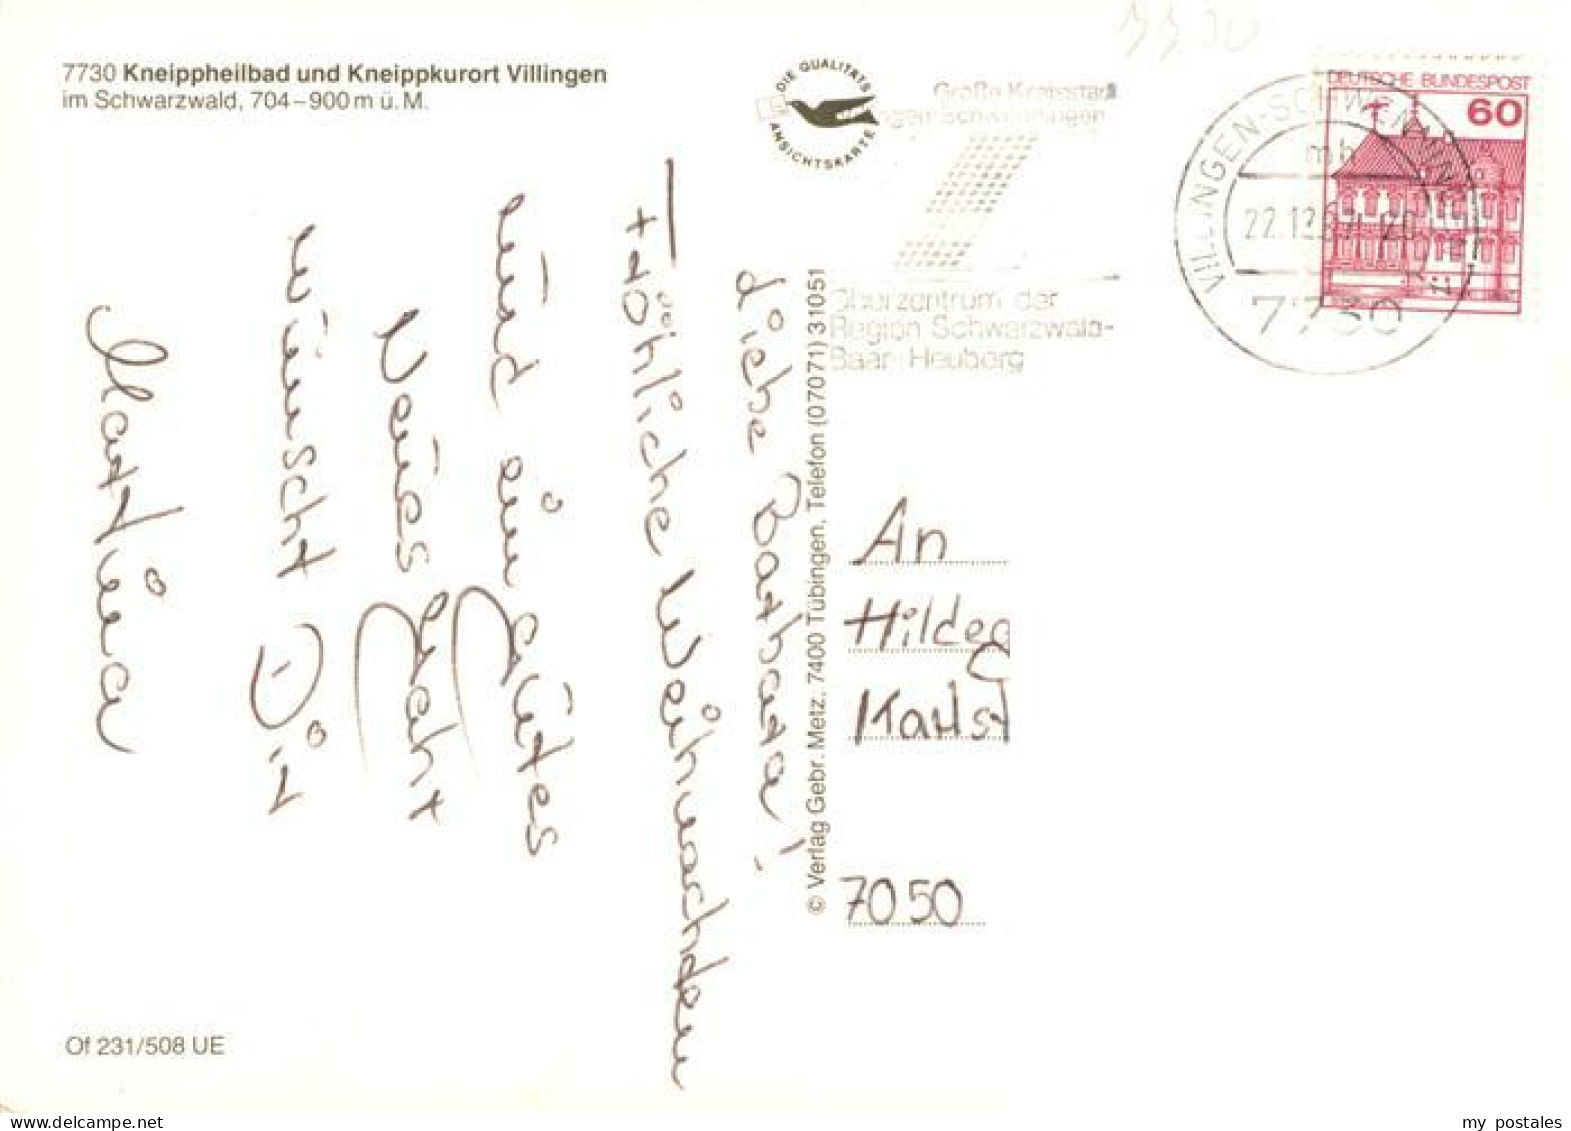 7730 Kneippheilbad und Kneippkurort Villingen
im Schwarzwald, 704–900 m ü. M.
DIE QUALITÄTS
ANSICHTSKARTE
Große Kreisstadt
ngen-Schwenningen
Oberzentrum der
Region Schwarzwald-
Baar-Heuberg
VILLINGEN-SCHWENNINGEN
mb
22.12.
7730
DEUTSCHE BUNDESPOST
60
Liebe Barbara!
Fröhliche Weihnachten
und ein gutes
Neues Jahr
wünscht Dir
Martina
© Verlag Gebr. Metz, 7400 Tübingen, Telefon (07071) 31051
An
Hildeg
Karlst
7050
Of 231/508 UE
my postales